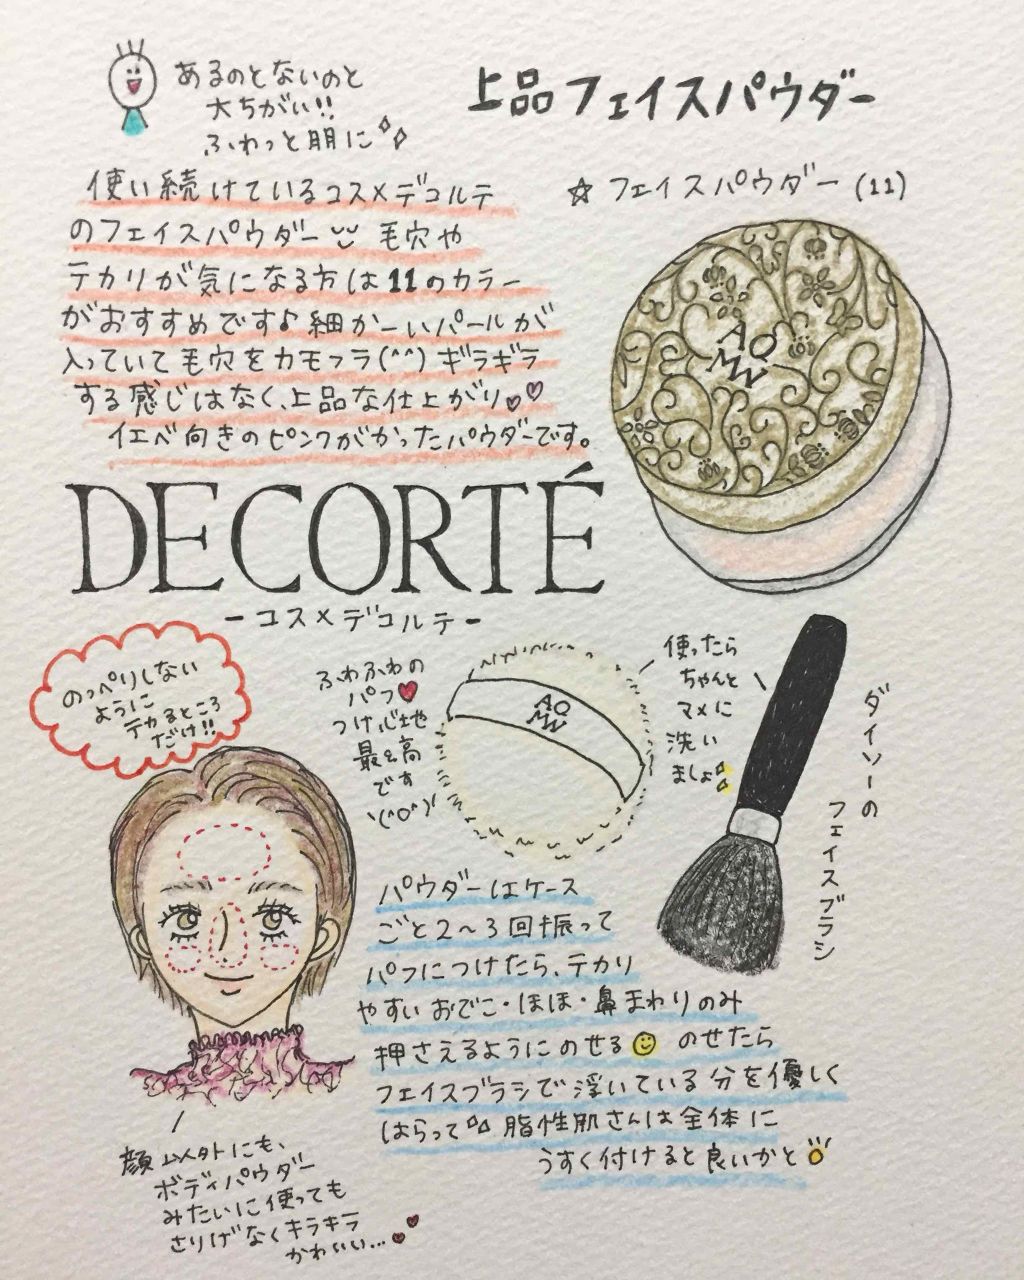 あるのとないのと
大ちがい!!
ふわっと肌に
上品フェイスパウダー
使い続けているコスメデコルテ
のフェイスパウダー 毛穴や
テカリが気になる方は11のカラー
がおすすめです♪細かーいパールが
入っていて毛穴をカモフラ(^^)ギラギラ
する感じはなく、上品な仕上がり♡♡
イエベ向きのピンクがかったパウダーです。
☆フェイスパウダー(11)
AQ
MW
DECORTÉ
-コスメデコルテ-
のっぺりしない
ように
テカるところ
だけ!!
ふわふわの
パフ♥
つけ心地
最&高
です
\(^o^)/
AQ
MW
使ったら
ちゃんと
マメに
洗い
ましょ
ダイソーの
フェイスブラシ
パウダーはケース
ごと2〜3回振って
パフにつけたら、テカリ
やすいおでこ・ほほ・鼻まわりのみ
押さえるようにのせる のせたら
フェイスブラシで浮いている分を優しく
はらって 脂性肌さんは全体に
うすく付けると良いかと
顔以外にも、
ボディパウダー
みたいに使っても
さりげなくキラキラ
かわいい...♥♥